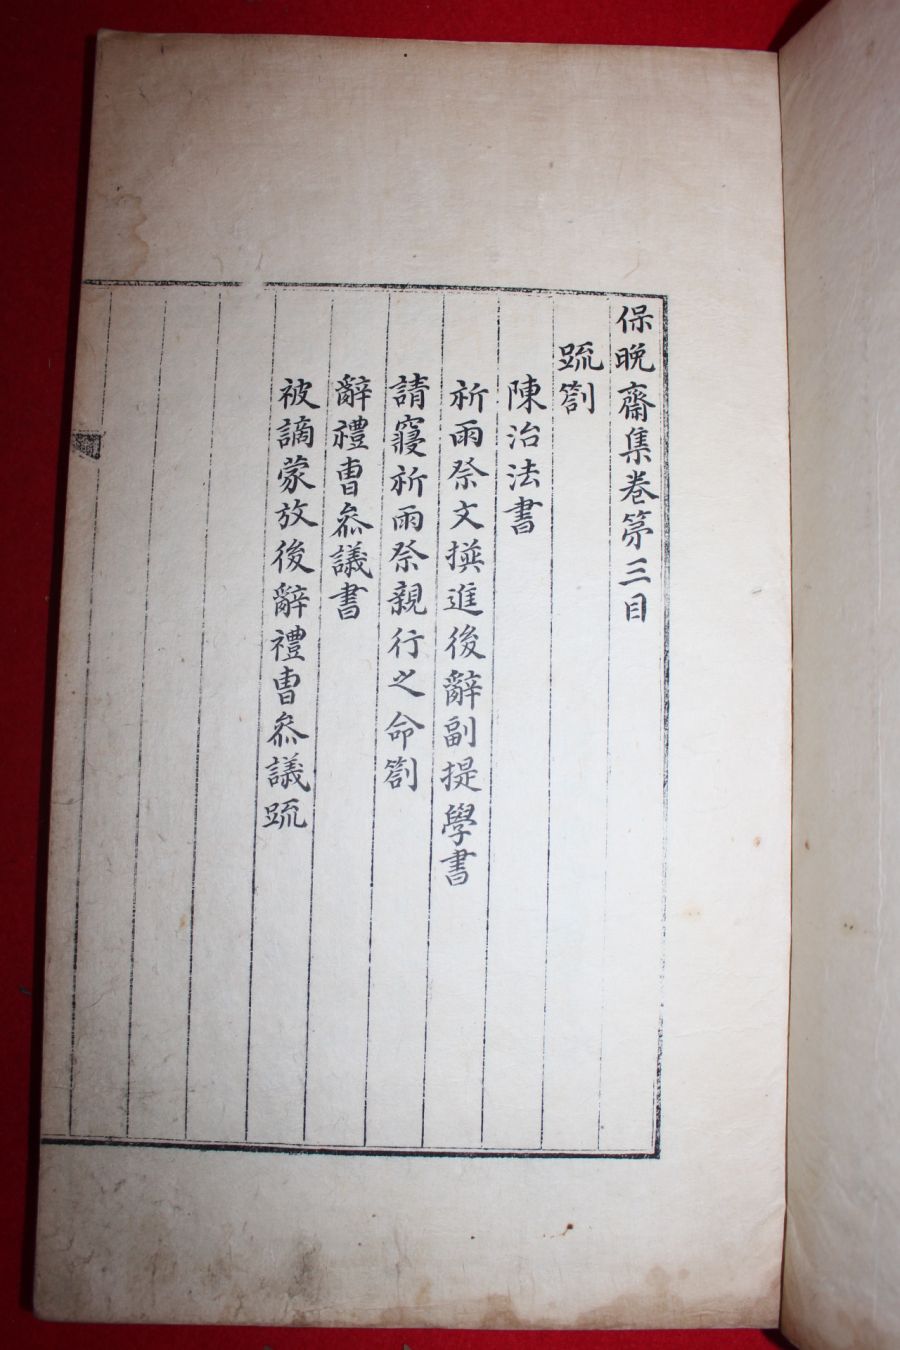 保晚齋集卷第三目
䟽劄
陳治法書
祈雨祭文撰進後辭副提學書
請寢祈雨祭親行之命劄
辭禮曹叅議書
被謫蒙放後辭禮曹叅議䟽